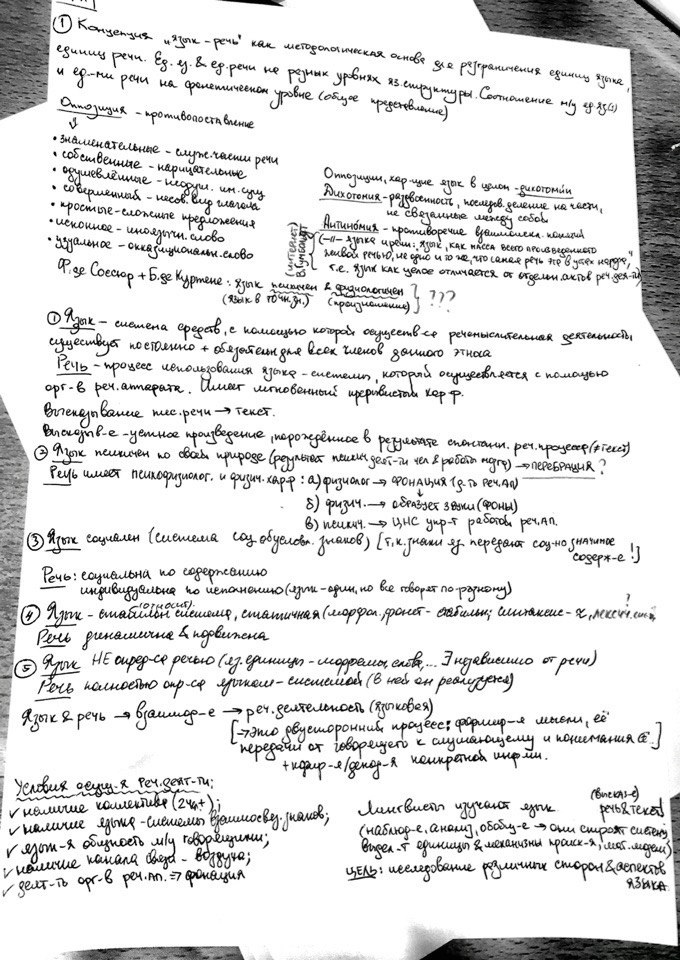 ① Концепция „язык – речь" как методологическая основа для разграничения единиц языка,
единиц речи. Ед. яз. & ед. речи на разных уровнях яз. структуры. Соотношение м/у ед. яз(з)
и ед-ми речи на фонетическом уровне (общее представление)
Оппозиция – противопоставление
• знаменательные – служ. части речи
• собственные – нарицательные
• одушевлённые – неодуш. им. сущ
• совершенный – несов. вид глагола
• простые – сложные предложения
• исконное – иноязычн. слово
• узуальное – окказициональн. слово
Оппозиции, хар-щие язык в целом – дихотомии
Дихотомия – раздвоенность, последов. деление на части,
не связанные между собой
Антиномия – противоречие взаимоискл. понятий
(интернет)
В. Гумбольдт
(–//– языка и речи: язык, как масса всего произведенного
живой речью, не одно и то же, что самая речь это в устах народа,"
т.е. язык как целое отличается от отдельн. актов реч. дея-ти)
Ф. де Соссюр + Б. де Куртене: язык психичен & физиологичен
(язык в точн. зн.) (произношение) ???
① Язык – система средств, с помощью которой осуществ-ся речемыслительная деятельность,
существует постоянно + обязателен для всех членов данного этноса
Речь – процесс использования языка-системы, который осуществляется с помощью
орг-в реч. аппарата. Имеет мгновенный прерывистый хар-р.
Высказывание пис. речи → текст.
Высказыв-е – устное произведение, порождённое в результате спонтанн. реч. процесса (≠ текст)
② Язык психичен по своей природе (результат психич. деят-ти чел & работы мозга) → ПЕРЕБРАЦИЯ ?
Речь имеет психофизиолог. и физич. хар-р: а) физиолог → ФОНАЦИЯ (д-ть реч. ап)
б) физич. → образует звуки (фоны)
в) психич. → ЦНС упр-т работой реч. ап.
③ Язык социален (система соц. обусловл. знаков) [т.к. знаки яз. передают соц-но значимое
содерж-е !]
Речь: социальна по содержанию
индивидуальна по исполнению (язык – один, но все говорят по-разному)
(относит.)
④ Язык – стабильн. система, статичная (морфол., фонет – стабильн; синтаксис –
Речь динамична & подвижена
⑤ Язык НЕ опред-ся речью (яз. единицы – морфемы, слова, ... ∃ независимо от речи)
Речь полностью опр-ся языком – системой (в ней он реализуется)
Язык & речь → взаимод-е → реч. деятельность (языковая)
[→ Это двусторонний процесс: формир-я мысли, её
передачи от говорящего к слушающему и понимания её.]
+ кодир-я / декод-я конкретной инфы.
Условия осущ-я реч. деят-ти:
✓ наличие коллектива (2 чел+);
✓ наличие языка – системы взаимосвяз. знаков;
✓ язык-я общность м/у говорящими;
✓ наличие канала связи – воздуха;
✓ деят-ть орг-в реч. ап. ⇒ фонация
(высказ-е)
Лингвисты изучают язык речь & текст
(наблюд-е, анализ, обобщ-е → они строят систему,
выдел-т единицы & механизмы
ЦЕЛЬ: исследование различных сторон & аспектов
языка